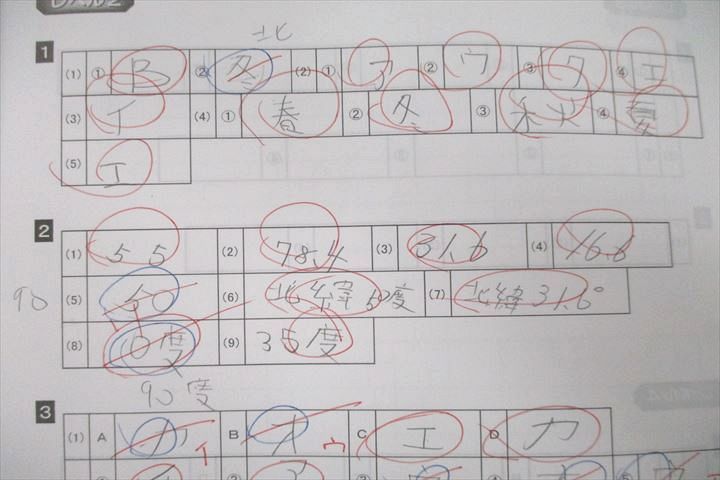 レベル2
北
1
(1) ① B ② 冬 (2) ① ア ② ウ ③ ク ④ エ
(3) イ (4) ① 春 ② 冬 ③ 秋 ④ 夏
(5) エ
2
(1) 55 (2) 78.4 (3) 31.6 (4) 16.6
90 (5) (6) 北緯50度 (7) 北緯31.6°
(8) 0度 (9) 35度
90度
3
(1) A イ B オ ウ C エ D カ